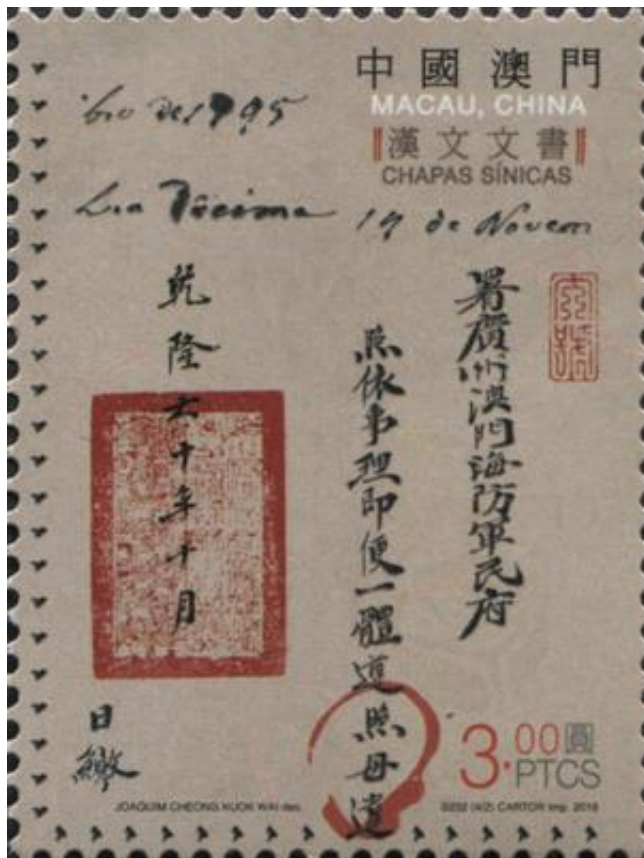 中國澳門
MACAU, CHINA
漢文文書
CHAPAS SÍNICAS
bro de 1795
Lra Décima 17 de Novem
署廣州澳門海防軍民府
照依事理即便一體遵照毋違
乾隆六十年十月
日繳
3.00圓
PTCS
JOAQUIM CHEONG KUOK WAI des.
CARTOR imp. 2018